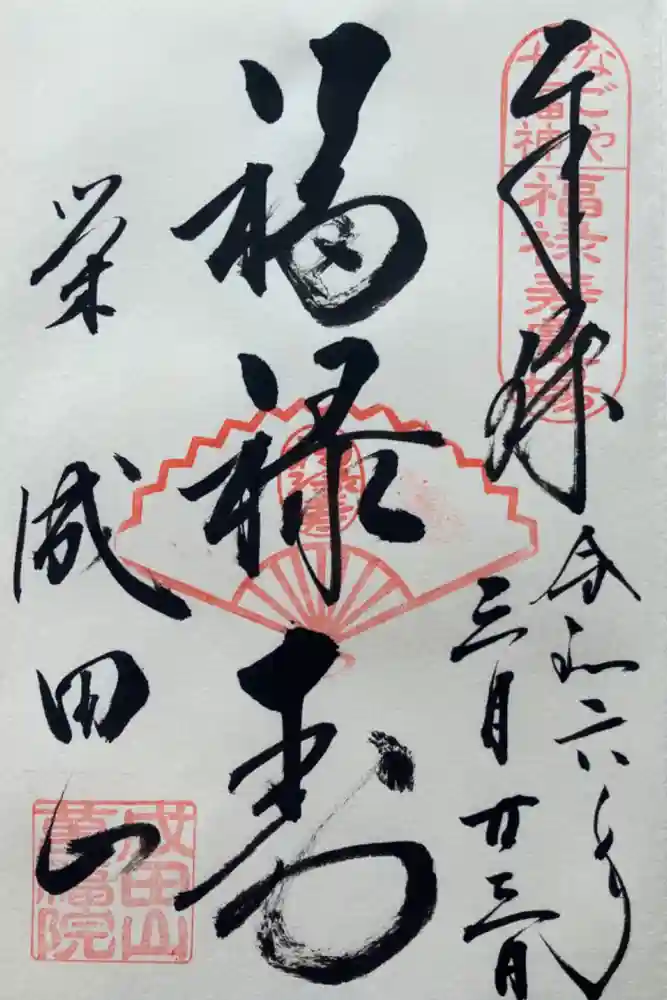 奉拝
なごや
七福神
福禄寿霊場
令和六年
三月廿三日
福禄寿
福禄寿
栄
成田山
成田山
萬福院